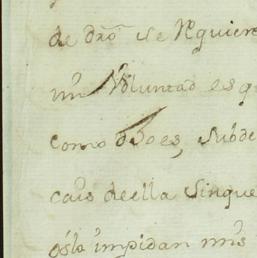 de dro̅ se Requiere
mi Voluntad es q
como dho es, subde
cais de ella sinque
impidan mis